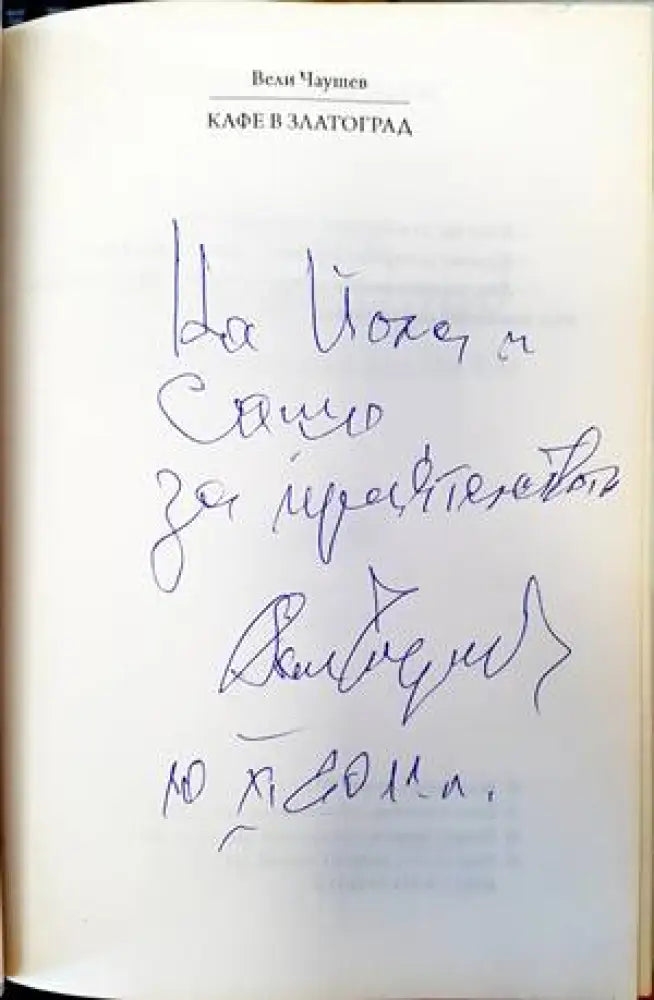 Вели Чаушев
КАФЕ В ЗЛАТОГРАД
На Йока и
Сашо
за приятелството
10 XI 2011 г.